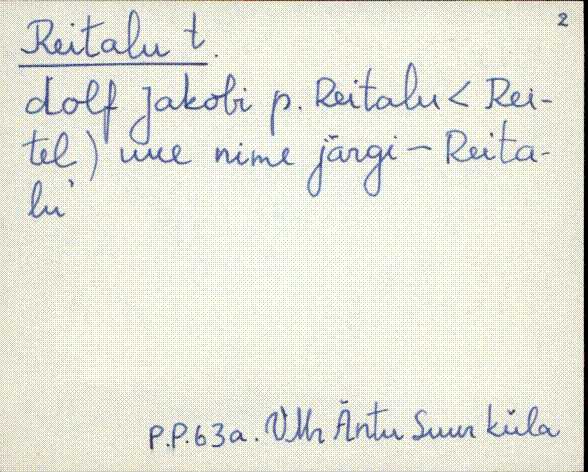 2
Reitalu t.
dolf Jakobi p. Reitalu < Rei-
tel) uue nime järgi – Reita-
lu'
P.P.63a. VMr Äntu Suur küla